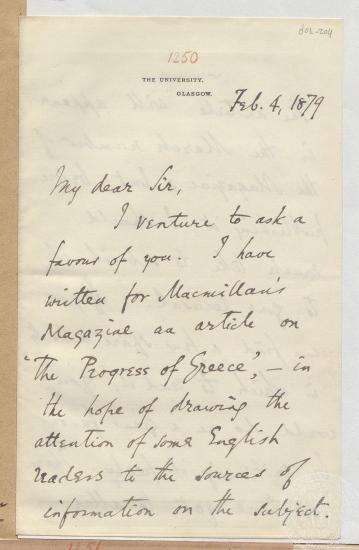 1250
THE UNIVERSITY,
GLASGOW.
Feb. 4, 1879
My dear Sir,
I venture to ask a
favour of you. I have
written for Macmillan's
Magazine an article on
"The Progress of Greece", – in
the hope of drawing the
attention of some English
readers to the sources of
information on the subject.